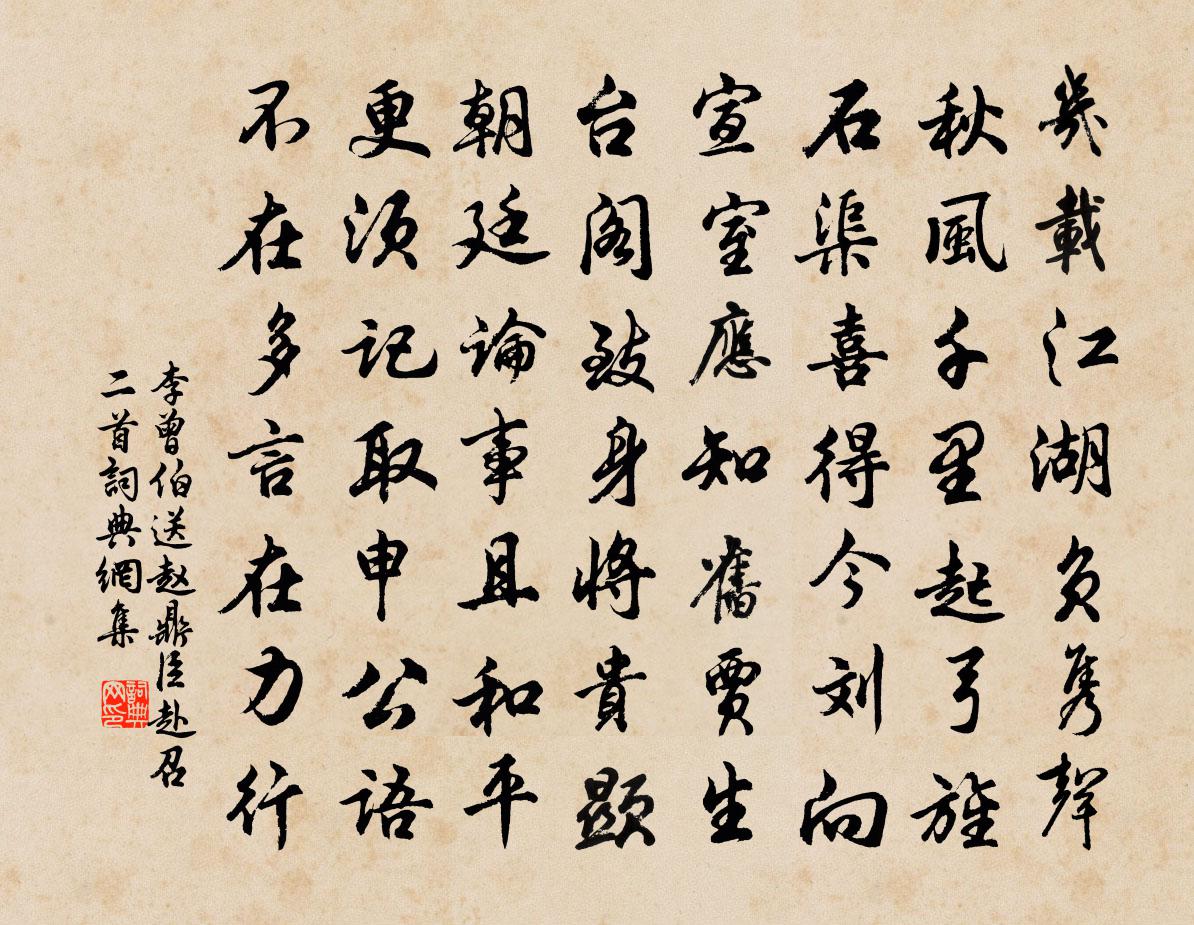 幾載江湖負隽聲
秋風千里起弓旌
石渠喜得今刘向
宣室應知舊賈生
台阁致身將貴顯
朝廷論事且和平
更須記取申公語
不在多言在力行
李曾伯送赵鼎臣赴召
二首詞典網集
詞典网印